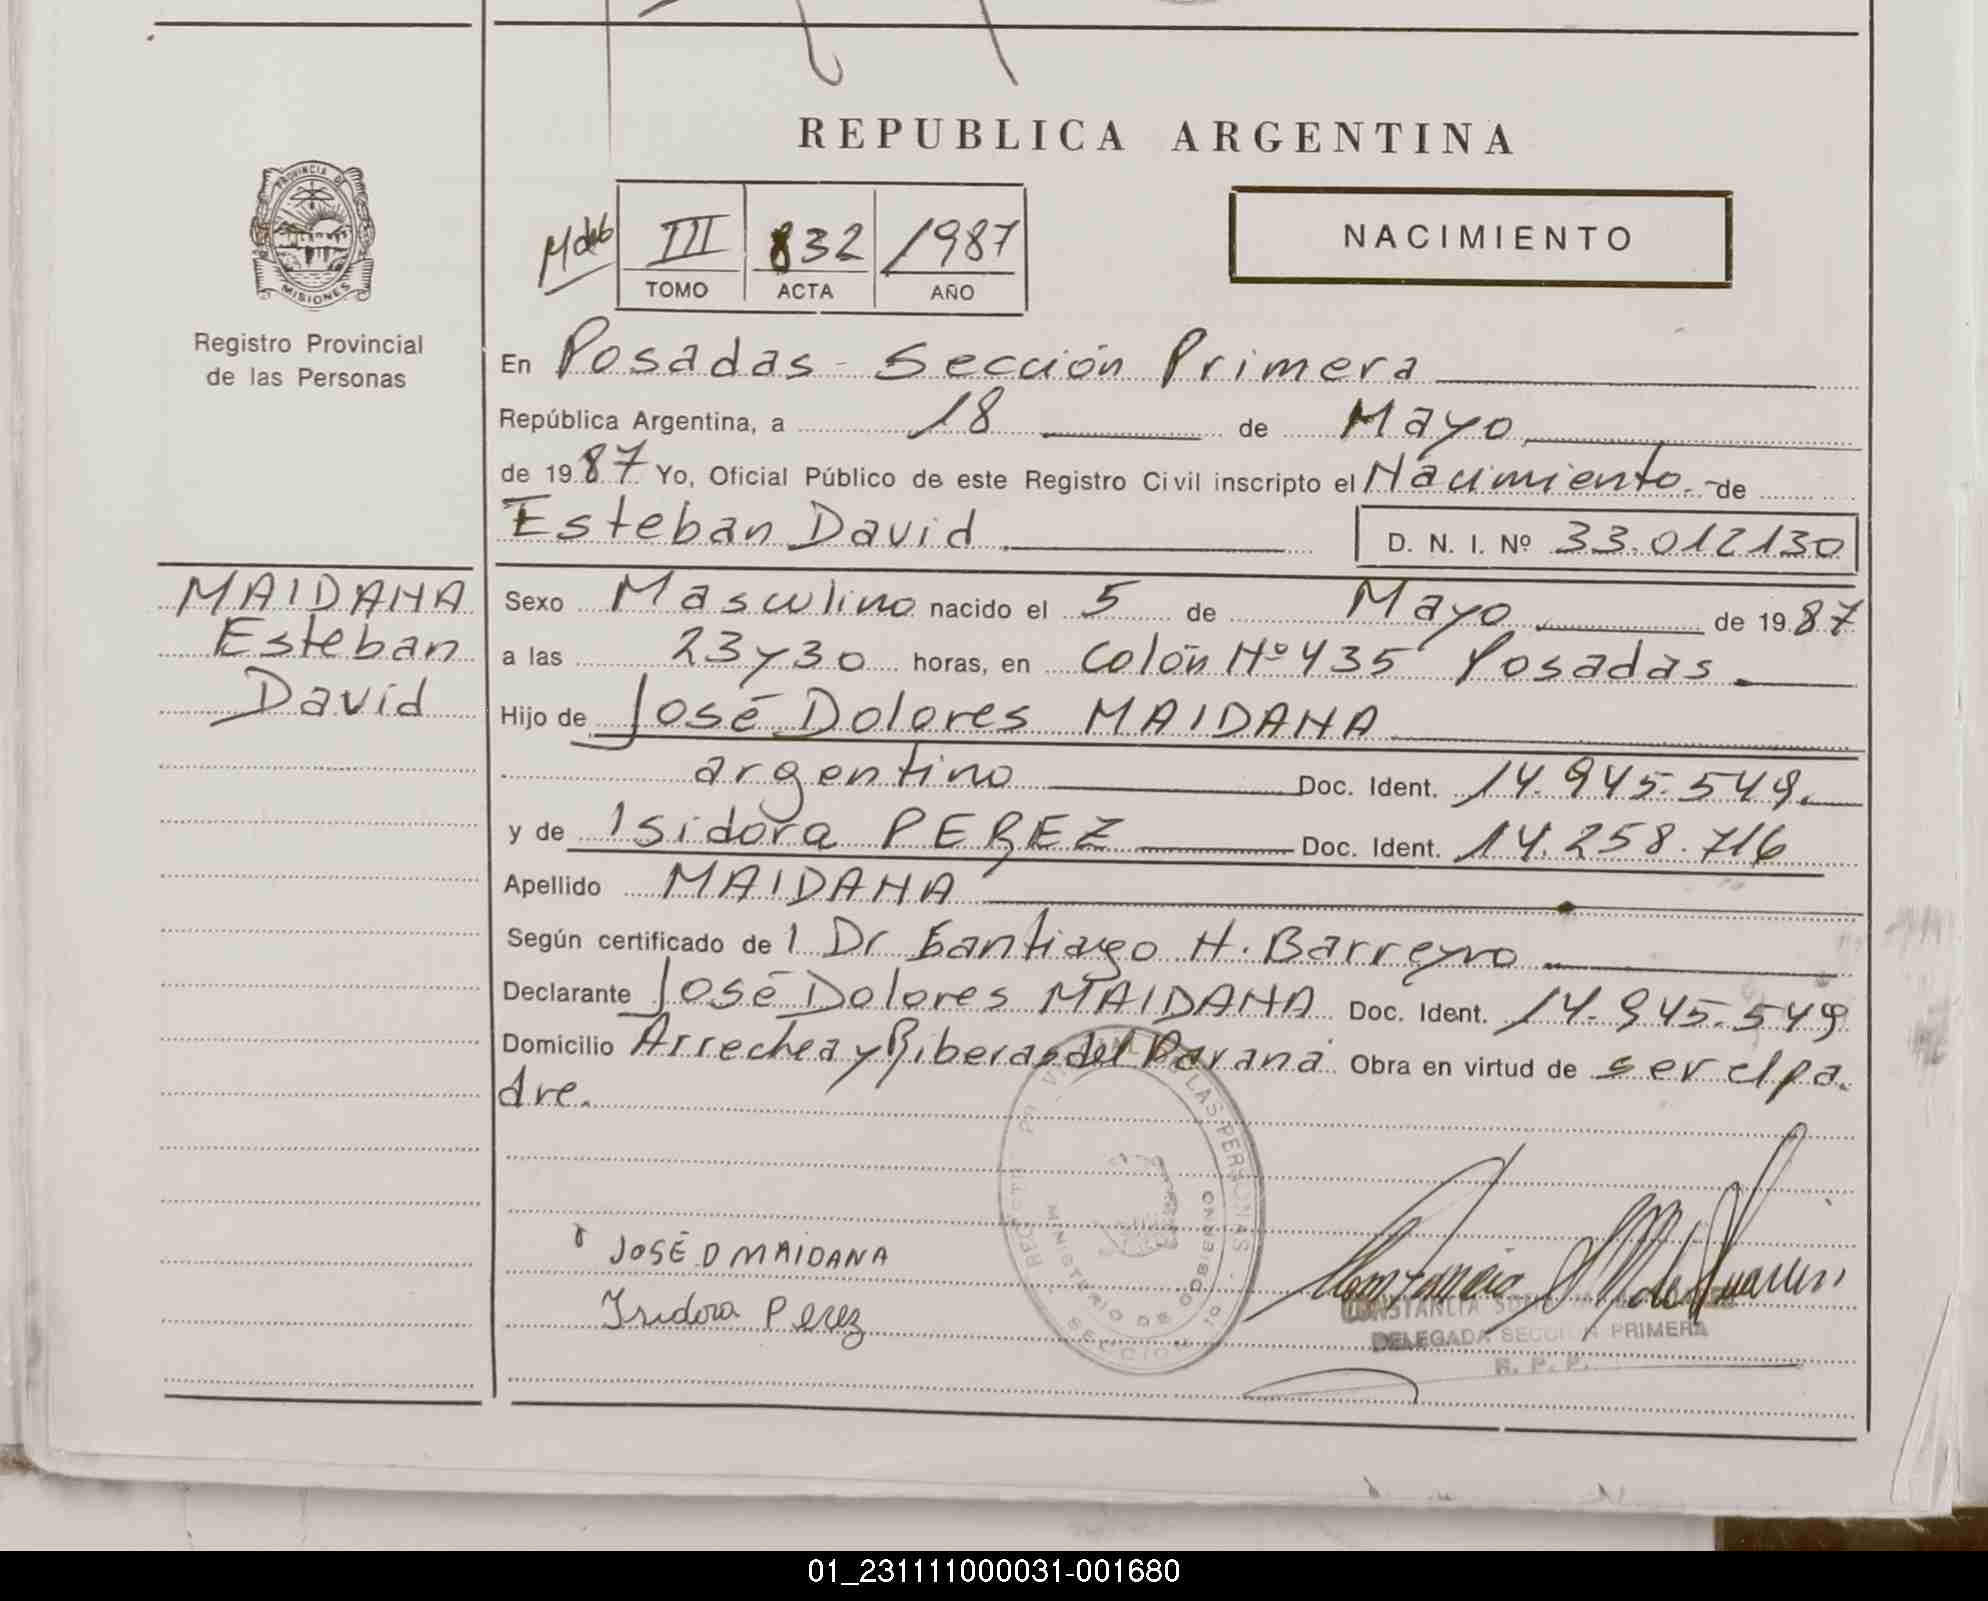 REPUBLICA ARGENTINA
PROVINCIA DE
MISIONES
Registro Provincial
de las Personas
III 832 1987
TOMO ACTA AÑO
NACIMIENTO
En Posadas - Sección Primera
República Argentina, a 18 de Mayo
de 1987 Yo, Oficial Público de este Registro Civil inscripto el Nacimiento - de
Esteban David D. N. I. Nº 33.012130
MAIDANA
Esteban
David
Sexo Masculino nacido el 5 de Mayo de 1987
a las 23 y 30 horas, en Colón Nº 435 Posadas
Hijo de José Dolores MAIDANA
argentino Doc. Ident. 14.945.549.
y de Isidora PEREZ Doc. Ident. 14.258.716
Apellido MAIDANA
Según certificado de l Dr Santiago H. Barreyro
Declarante José Dolores MAIDANA Doc. Ident. 14.945.549
Domicilio Arrechea y Riberas del Paraná Obra en virtud de ser el pa.
dre.
JOSÉ D MAIDANA
Isidora Perez
LAS PERSONAS
MINISTERIO DE GOBIERNO
SECCION 1º
CONSTANCIA
DELEGADA SECCION PRIMERA
R. P. P.
01_231111000031-001680